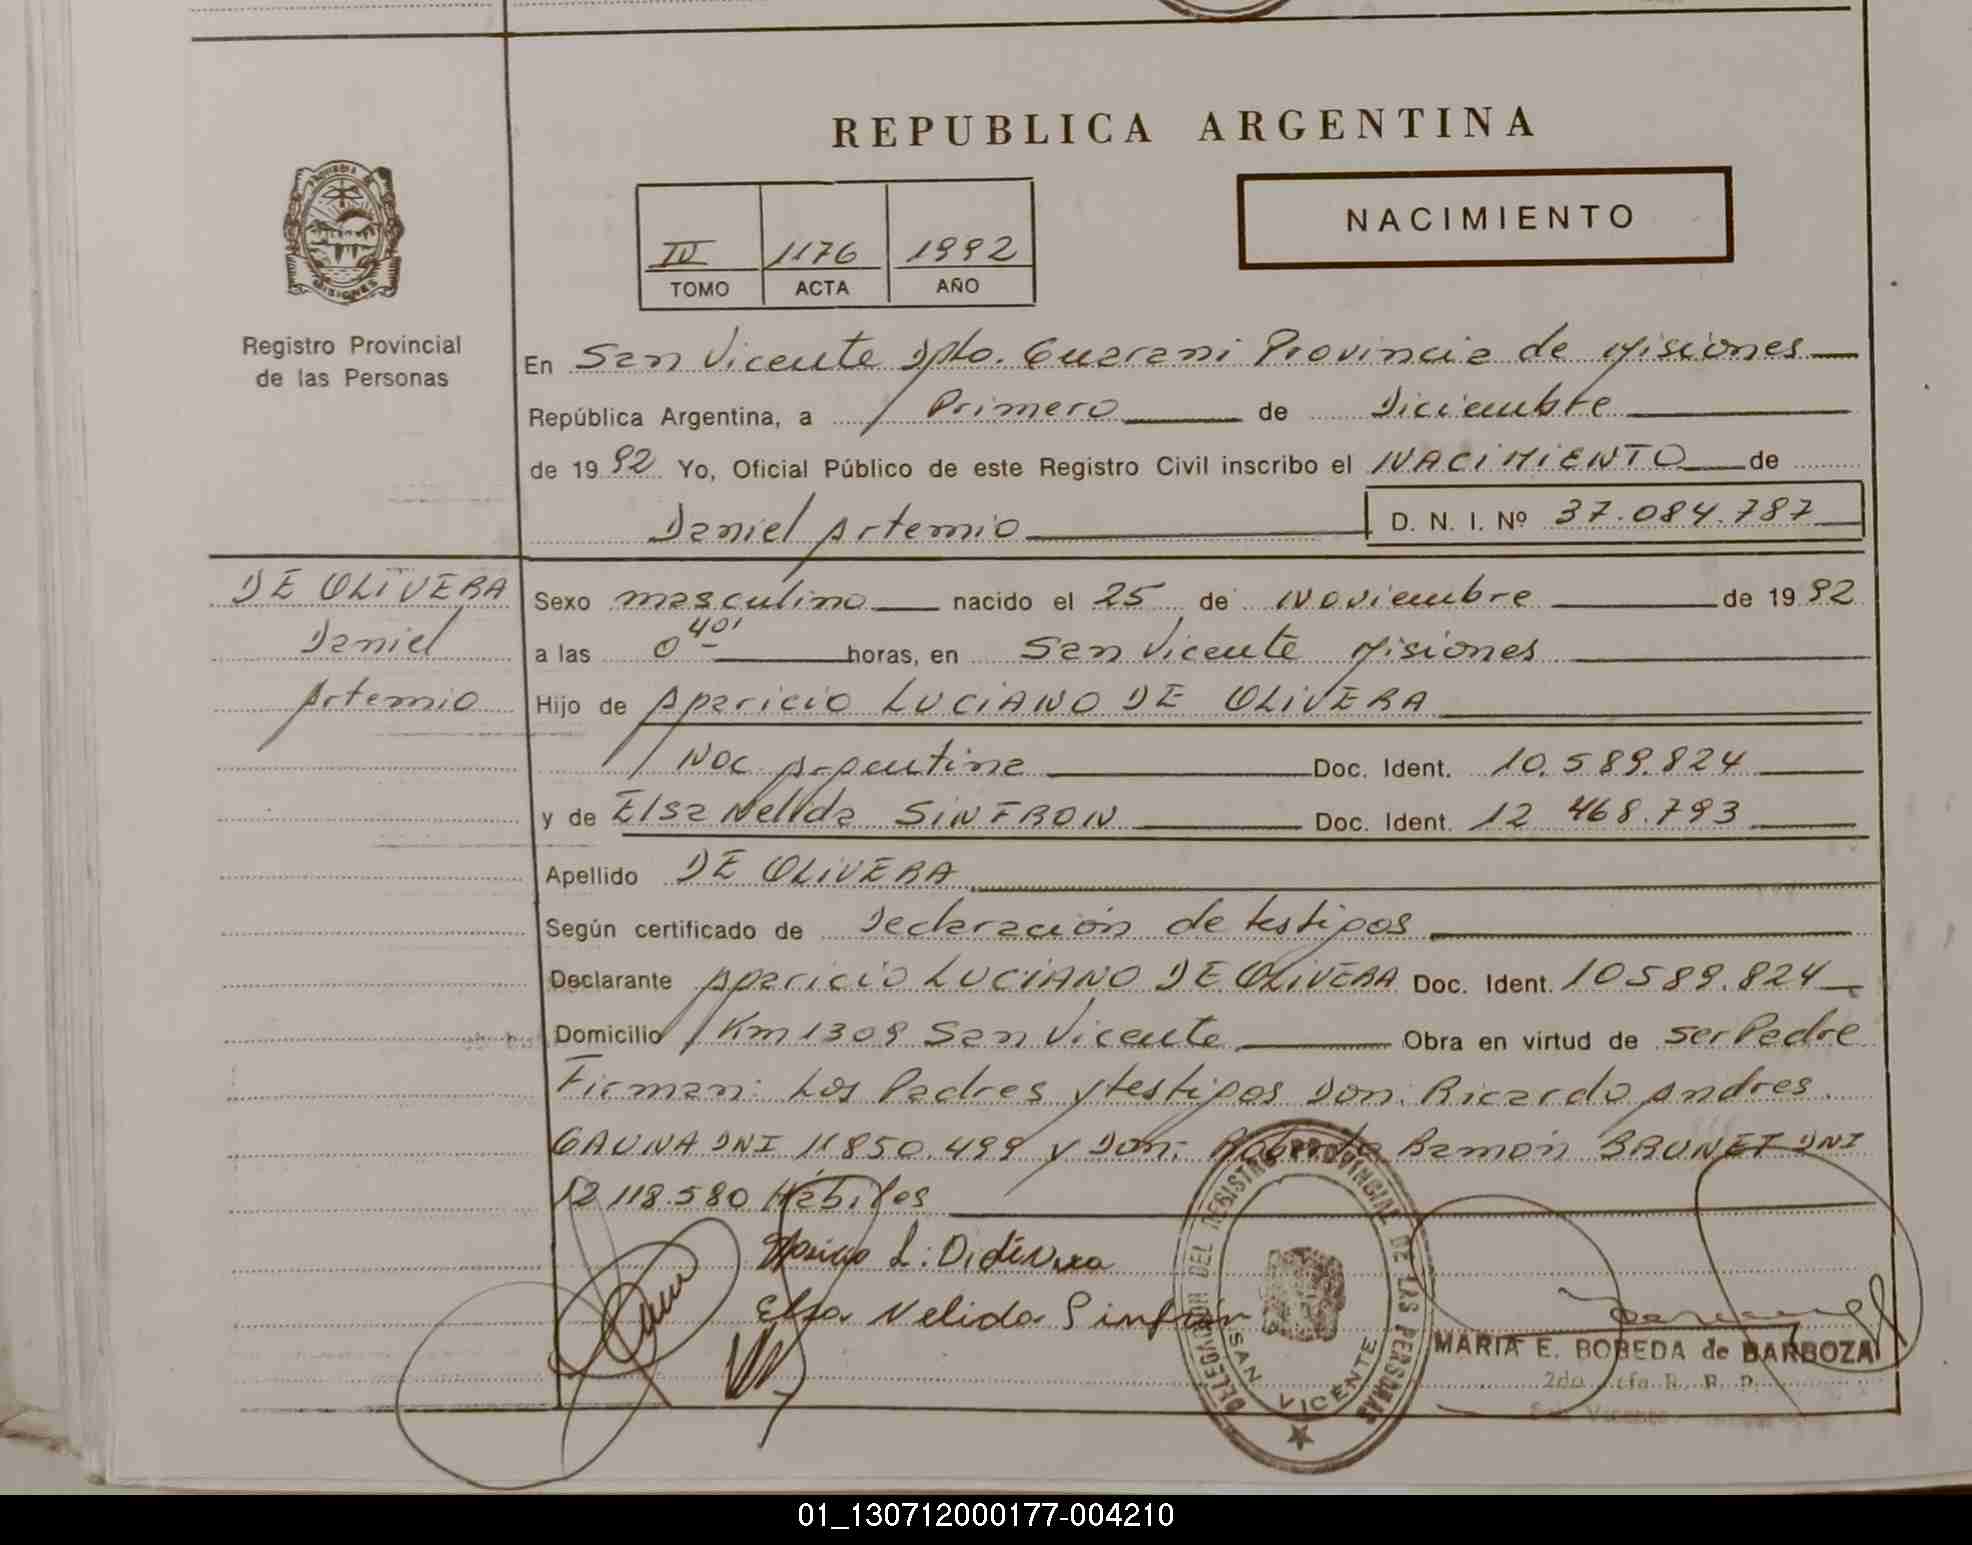 REPUBLICA ARGENTINA
NACIMIENTO
IV 1176 1992
TOMO ACTA AÑO
MISIONES
Registro Provincial
de las Personas
En San Vicente Dpto. Guarani Provincia de Misiones
República Argentina, a Primero de Diciembre
de 1992 Yo, Oficial Público de este Registro Civil inscribo el NACIMIENTO de
Daniel Artemio D. N. I. Nº 37.084.787
DE OLIVERA
Daniel
Artemio
Sexo masculino nacido el 25 de Noviembre de 1992
a las 0 40' horas, en San Vicente Misiones
Hijo de Aparicio LUCIANO DE OLIVERA
Nac Argentina Doc. Ident. 10.589.824
y de Elsa Nelida SINFRON Doc. Ident. 12 468.793
Apellido DE OLIVERA
Según certificado de Declaración de testigos
Declarante Aparicio LUCIANO DE OLIVERA Doc. Ident. 10589.824
Domicilio Km 1309 San Vicente Obra en virtud de ser Padre
Firman: Los Padres y testigos Don: Ricardo Andres
GAUNA DNI 11850.499 y Don: Roberto Ramón BRUNET DNI
12 118.580 Hábiles
L. Olivera
Elsa Nelida Sinfrón
DELEGACION DEL REGISTRO PROVINCIAL DE LAS PERSONAS
SAN VICENTE
MARIA E. BOBEDA de BARBOZA
2da Jefa R. P. P.
San Vicente
01_130712000177-004210